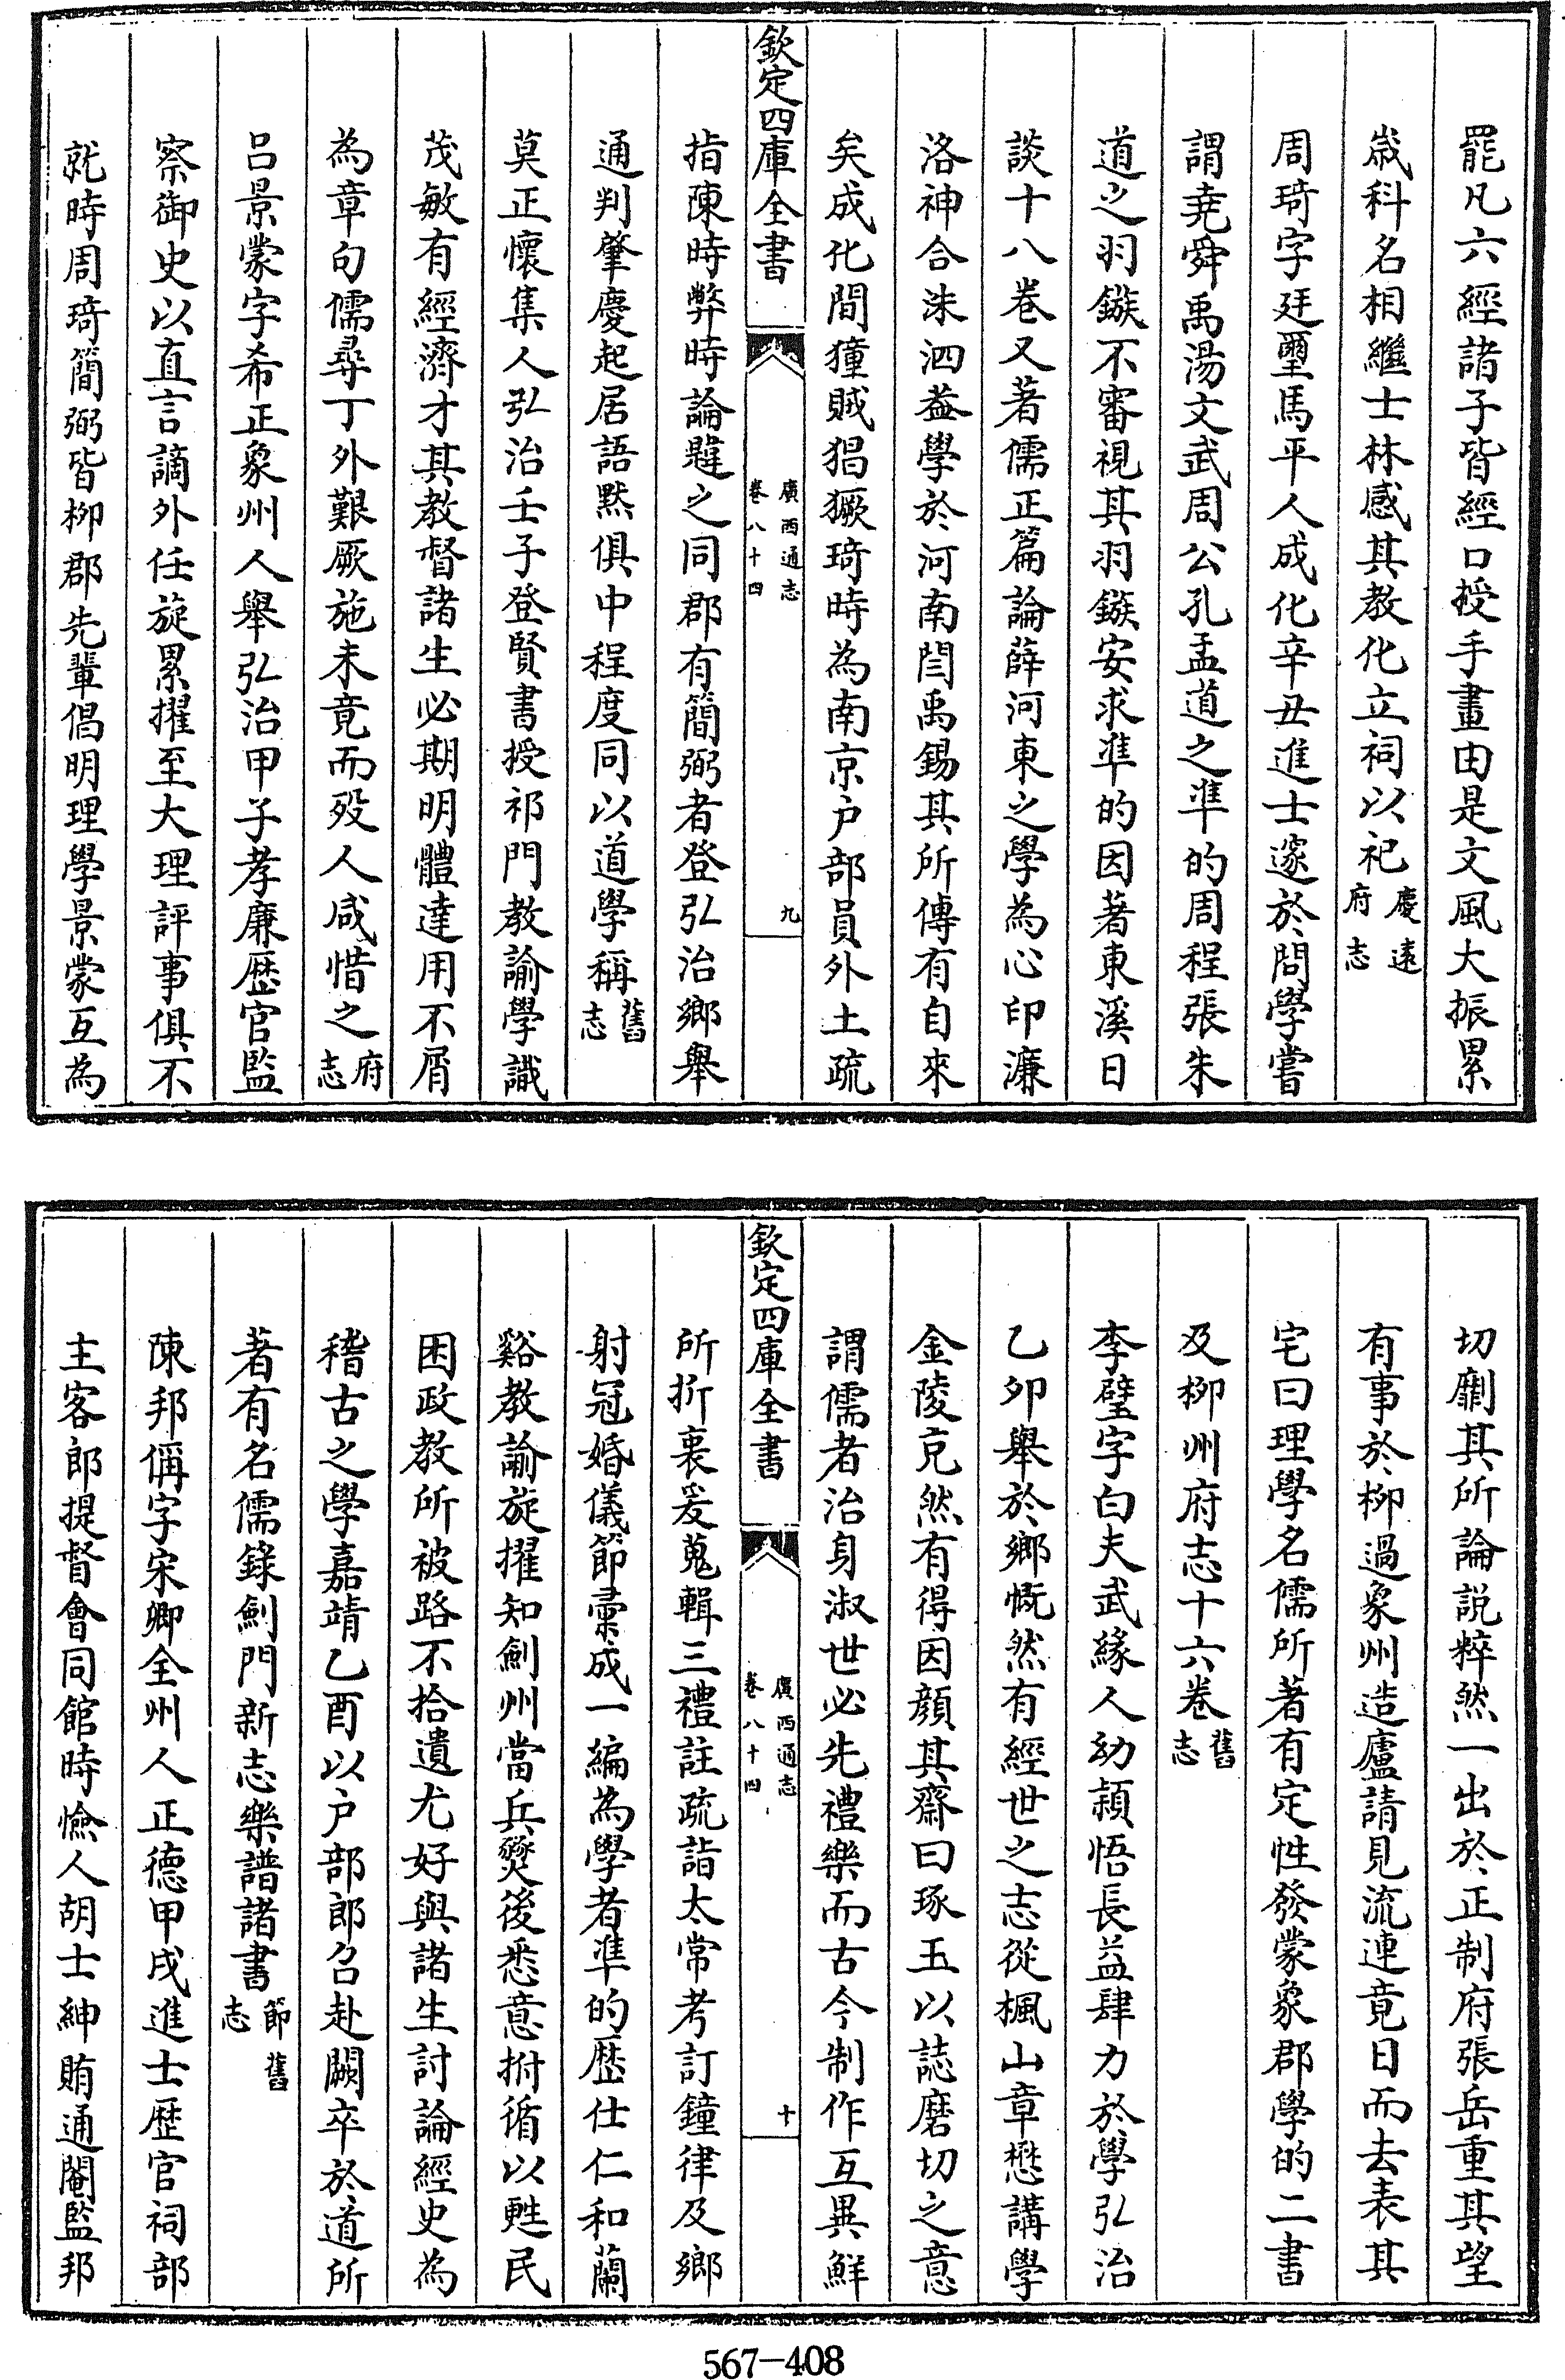 罷凡六經諸子皆經口授手畫由是文風大振累
歲科名相繼士林感其教化立祠以祀慶遠府志
周琦字廷璽馬平人成化辛丑進士邃於問學嘗
謂堯舜禹湯文武周公孔孟道之準的周程張朱
道之羽鏃不審視其羽鏃安求準的因著東溪日
談十八卷又著儒正篇論薛河東之學為心印濂
洛神合洙泗葢學於河南閆禹錫其所傳有自來
矣成化間獞賊猖獗琦時為南京户部員外上疏
欽定四庫全書
廣西通志
卷八十四
九
指陳時弊時論韙之同郡有簡弼者登弘治鄉舉
通判肇慶起居語黙俱中程度同以道學稱舊志
莫正懷集人弘治壬子登賢書授祁門教諭學識
茂敏有經濟才其教督諸生必期明體達用不屑
為章句儒尋丁外艱厥施未竟而歿人咸惜之府志
呂景蒙字希正象州人舉弘治甲子孝廉歴官監
察御史以直言謫外任旋累擢至大理評事俱不
就時周琦簡弼皆柳郡先輩倡明理學景蒙互為
切劘其所論說粹然一出於正制府張岳重其望
有事於柳過象州造廬請見流連竟日而去表其
宅曰理學名儒所著有定性發蒙象郡學的二書
及柳州府志十六卷舊志
李璧字白夫武緣人幼潁悟長益肆力於學弘治
乙卯舉於鄉慨然有經世之志從楓山章懋講學
金陵克然有得因顔其齋曰琢玉以誌磨切之意
謂儒者治身淑世必先禮樂而古今制作互異鮮
欽定四庫全書
廣西通志
卷八十四
十
所折衷爰蒐輯三禮註疏詣太常考訂鐘律及鄉
射冠婚儀節彚成一編為學者準的歴仕仁和蘭
谿教諭旋擢知劍州當兵燹後悉意拊循以甦民
困政教所被路不拾遺尤好與諸生討論經史為
稽古之學嘉靖乙酉以户部郎召赴闕卒於道所
著有名儒錄劍門新志樂譜諸書節舊志
陳邦偁字宋卿全州人正德甲戌進士歴官祠部
主客郎提督會同館時憸人胡士紳賄通閹監邦
567-408